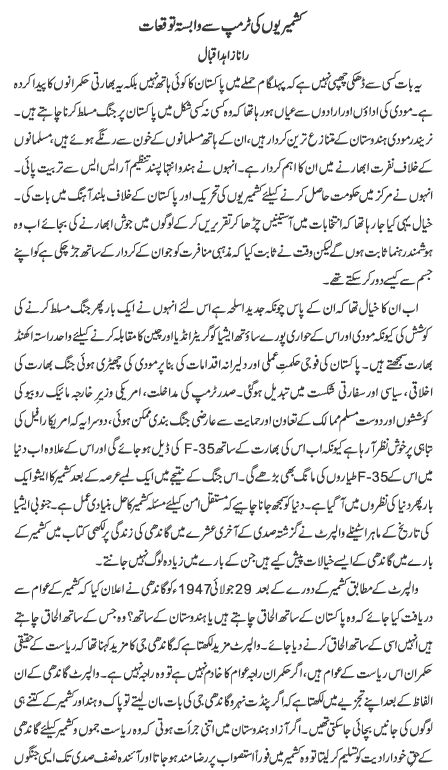 کشمیریوں کی ٹرمپ سے وابستہ توقعات
رانا زاہد اقبال
یہ بات کسی سے ڈھکی چھپی نہیں ہے کہ پہلگام حملے میں پاکستان کا کوئی ہاتھ نہیں بلکہ یہ بھارتی حکمرانوں کا پیدا کردہ
ہے۔ مودی کی اداؤں اور ارادوں سے عیاں ہو رہا تھا کہ وہ کسی نہ کسی شکل میں پاکستان پر جنگ مسلط کرنا چاہتے ہیں۔
نریندر مودی ہندوستان کے متنازع ترین کردار ہیں، ان کے ہاتھ مسلمانوں کے خون سے رنگے ہوئے ہیں، مسلمانوں
کے خلاف نفرت ابھارنے میں ان کا اہم کردار ہے۔ انہوں نے ہندو انتہا پسند تنظیم آر ایس ایس سے تربیت پائی۔
انہوں نے مرکز میں حکومت حاصل کرنے کیلئے کشمیریوں کی تحریک اور پاکستان کے خلاف بلند آہنگ میں بات کی۔
خیال یہی کیا جا رہا تھا کہ انتخابات میں آستینیں چڑھا کر تقریریں کر کے لوگوں میں جوش ابھارنے کی بجائے اب وہ
ہوشمند رہنما ثابت ہوں گے لیکن وقت نے ثابت کیا کہ مذہبی منافرت کو جو ان کے کردار کے ساتھ جڑ چکی ہے کو اپنے
جسم سے کیسے دور کر سکتے تھے۔
اب ان کا خیال تھا کہ ان کے پاس چونکہ جدید اسلحہ ہے اس لئے انہوں نے ایک بار پھر جنگ مسلط کرنے کی
کوشش کی کیونکہ مودی اور اس کے حواری پورے ساؤتھ ایشیا کو گریٹر انڈیا اور چین کا مقابلہ کرنے کیلئے واحد راستہ اکھنڈ
بھارت سمجھتے ہیں۔ پاکستان کی فوجی حکمت عملی اور دلیرانہ اقدامات کی بنا پر مودی کی چھیڑی ہوئی جنگ بھارت کی
اخلاقی، سیاسی اور سفارتی شکست میں تبدیل ہو گئی۔ صدر ٹرمپ کی مداخلت، امریکی وزیر خارجہ مائیک روبیو کی
کوششوں اور دوست مسلم ممالک کے تعاون اور حمایت سے عارضی جنگ بندی ممکن ہوئی، دوسرا یہ کہ امریکا رافیل کی
تباہی پر خوش نظر آ رہا ہے کیونکہ اب اس کی بھارت کے ساتھ F-35 کی ڈیل ہو جائے گی اور اس کے علاوہ اب دنیا
میں اس کے F-35 طیاروں کی مانگ بھی بڑھے گی۔ اس جنگ کے نتیجے میں ایک لمبے عرصہ کے بعد کشمیر کا ایشو ایک
بار پھر دنیا کی نظروں میں آ گیا ہے۔ دنیا کو سمجھ جانا چاہیے کہ مستقل امن کیلئے مسئلہ کشمیر کا حل بنیادی عمل ہے۔ جنوبی ایشیا
کی تاریخ کے ماہر اسٹینلے والپرٹ نے گزشتہ صدی کے آخری عشرے میں گاندھی کی زندگی پر لکھی کتاب میں کشمیر کے
بارے میں گاندھی کے ایسے خیالات پیش کیے ہیں جن کے بارے میں زیادہ لوگ نہیں جانتے۔
والپرٹ کے مطابق کشمیر کے دورے کے بعد 29 جولائی 1947ء کو گاندھی نے اعلان کیا کہ کشمیر کے عوام سے
دریافت کیا جائے کہ وہ پاکستان کے ساتھ الحاق چاہتے ہیں یا ہندوستان کے ساتھ؟ وہ جس کے ساتھ الحاق چاہتے
ہیں انہیں اسی کے ساتھ الحاق کرنے دیا جائے۔ والپرٹ مزید لکھتا ہے کہ گاندھی جی کا مزید کہنا تھا کہ ریاست کے حقیقی
حکمران اس ریاست کے عوام ہیں، اگر حکمران راجہ عوام کا خادم نہیں ہے تو وہ راجہ نہیں ہے۔ والپرٹ گاندھی کے ان
الفاظ کے بعد اپنے تجزیے میں لکھتا ہے کہ اگر پنڈت نہرو گاندھی جی کی بات مان لیتے تو پاک و ہند اور کشمیر کے کتنے ہی
لوگوں کی جانیں بچائی جا سکتی تھیں۔ اگر آزاد ہندوستان میں اتنی جرأت ہوتی کہ وہ ریاست جموں و کشمیر کیلئے گاندھی
کے حق خود ارادیت کو تسلیم کر لیتا تو وہ کشمیر میں فوراً استصواب پر رضامند ہو جاتا اور آئندہ نصف صدی تک ایسی جنگوں